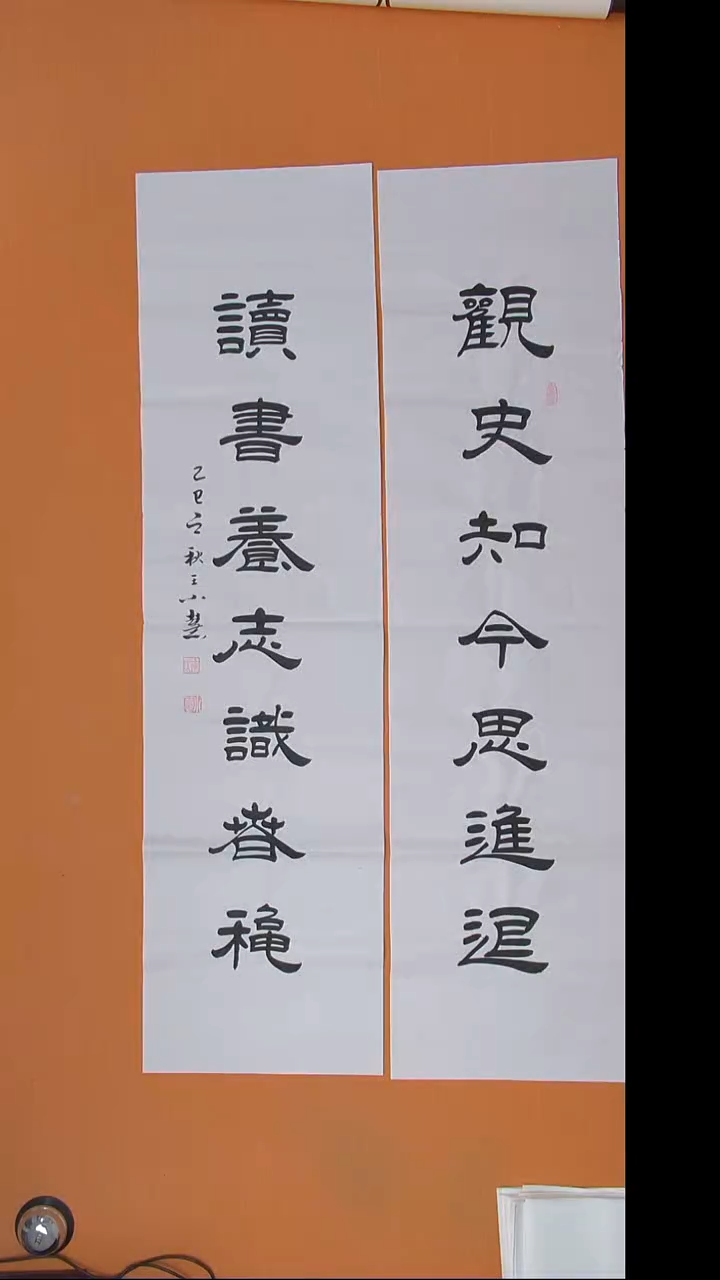 觀史知今思進退
讀書養志識春穐
乙巳之秋